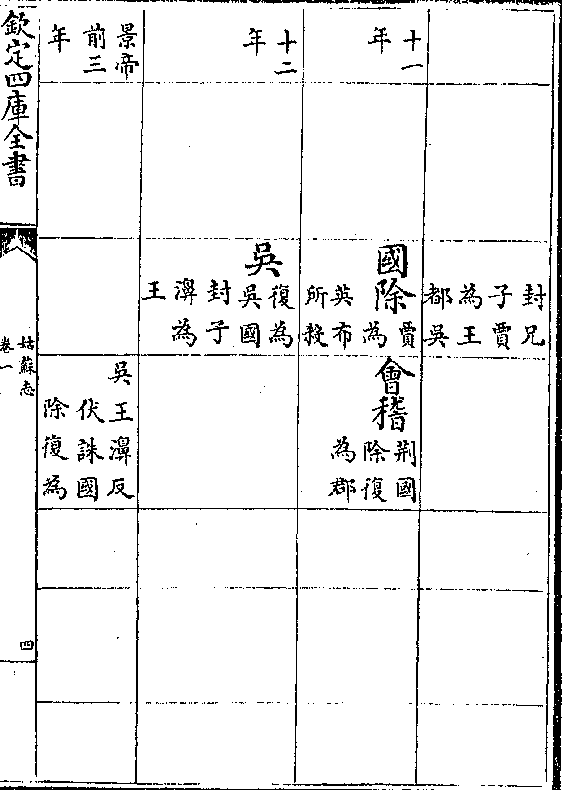 封兄
子賈
為王
都吳
十一
年
國除
賈
為
英布
所殺
會稽
荆國
除復
為郡
十二
年
吳
復為
吳國
封子
濞為
王
景帝
前三
年
吳王濞反
伏誅國
除復為
欽定四庫全書
姑蘇志
卷一
四